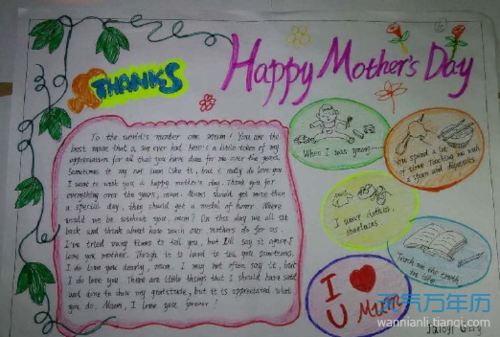 THANKS
Happy Mother's Day
To the world's number one mum! You are the
best mum that a we ever had. here's a little token of my
appreciation for all that you have done for me over the years.
Sometimes it may not seem like it, but I really do love you
I want to wish you a happy mother's day. Thank you for
everything over the years, mum. Mums should get more than
a special day, they should get a medal of honor. Where
would we be without you, mum? On this day we all sit
back and think about how much our mothers do for us.
I've tried many times to tell you, but I'll say it again I
love you mother. Though it is hard to tell you sometimes,
I do love you dearly, mum. I may not often say it, but
I do love you. There are little things that I should have said
and done to show my gratitude, but it is appreciated what
you do. Mum, I love you forever!
When I was young
You spend a lot
of time Teaching me such
I wear clothes,
Teach me the truth
to life
I
U Mum
天气万年历
wannianli.tianqi.com